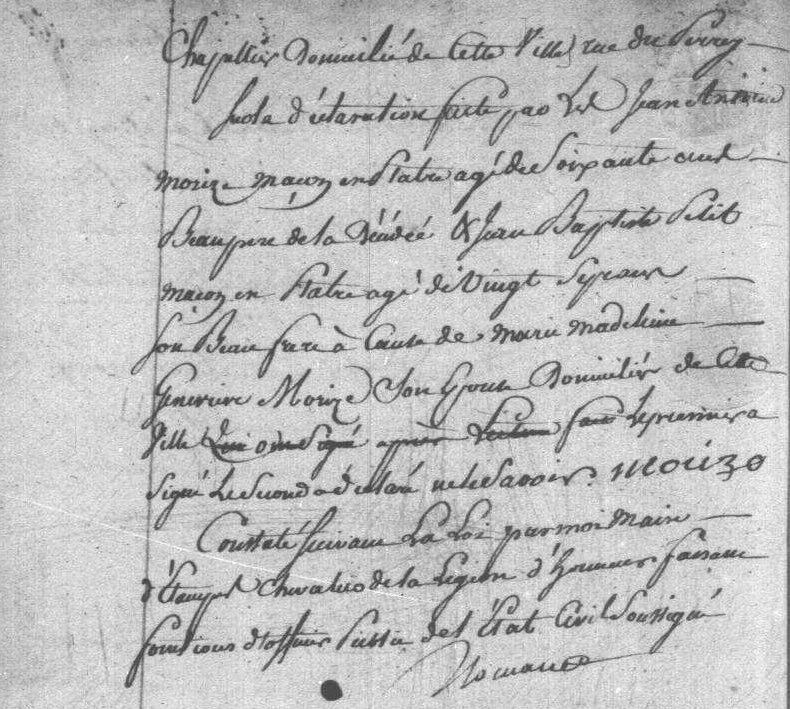 Chapellier Domicilié de Cette Ville, rue du Perray
Sur la déclaration faite par les Jean Antoine
morize maçon en Platre agé de Soixante ans
Beaupere de la Décédée & Jean Baptiste Petit
maçon en Platre agé de Vingt Sept ans
son Beau frere à Cause de marie madeleine
Genevieve Morize Son Epouse Domiciliés de Cette
Ville Qui ont Signé après Lecture faite Le premier a
signé Le Second a déclaré ne le Savoir. morize
Constaté Suivant La Loi par moi Maire
d'Etampes Chevalier de la Legion d'Honneur faisant
fonctions d'officier Public de l'État Civil Soussigné